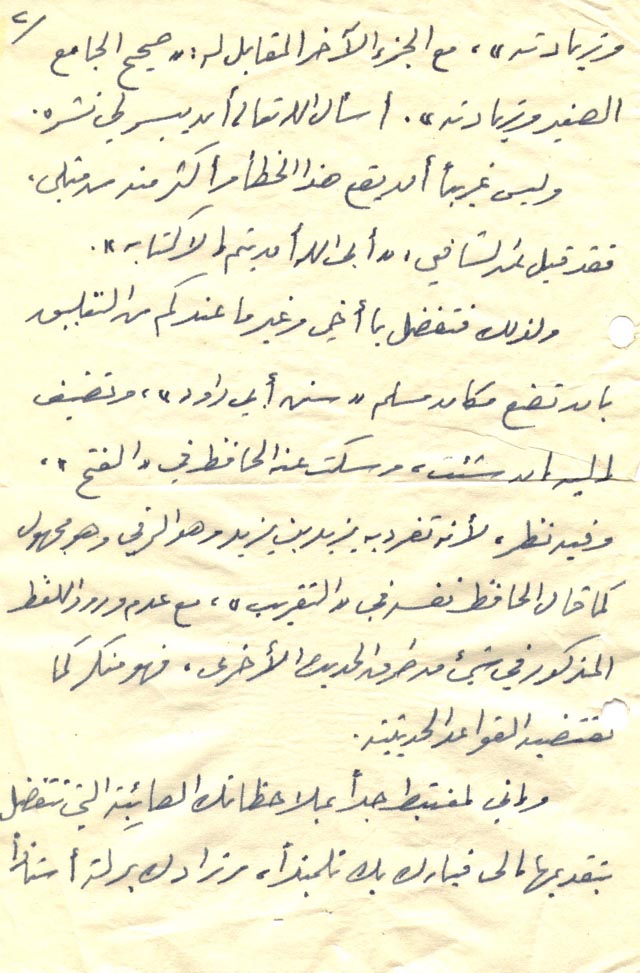 ٢/
وزيادته »، مع الجزء الآخر المقابل له: « صحيح الجامع
الصغير وزيادته ». أسأل الله تعالى أن ييسر لي نشره.
وليس غريباً أن يقع هذا الخطأ وأكثر منه من مثلي،
فقد قيل عن الشافعي: « أبى الله أن يتم إلا كتابه ».
ولذلك فتفضل يا أخي وغير ما عندكم من التعليق
بأن تضع مكان مسلم « سنن أبي داود »، وتضيف
إليه إن شئت، وسكت عنه الحافظ في « الفتح »،
وفيه نظر، لأنه تفرد به يزيد بن يزيد وهو الرقي وهو مجهول
كما قال الحافظ نفسه في « التقريب »، مع عدم ورود اللفظ
المذكور في شيء من طرق الحديث الأخرى، فهو منكر كما
تقتضيه القواعد الحديثية.
وإني لمغتبط جداً بملاحظاتك الصائبة التي تتفضل
بتقديمها إلى فبارك بك تلميذاً، وزادك بركة أستاذاً